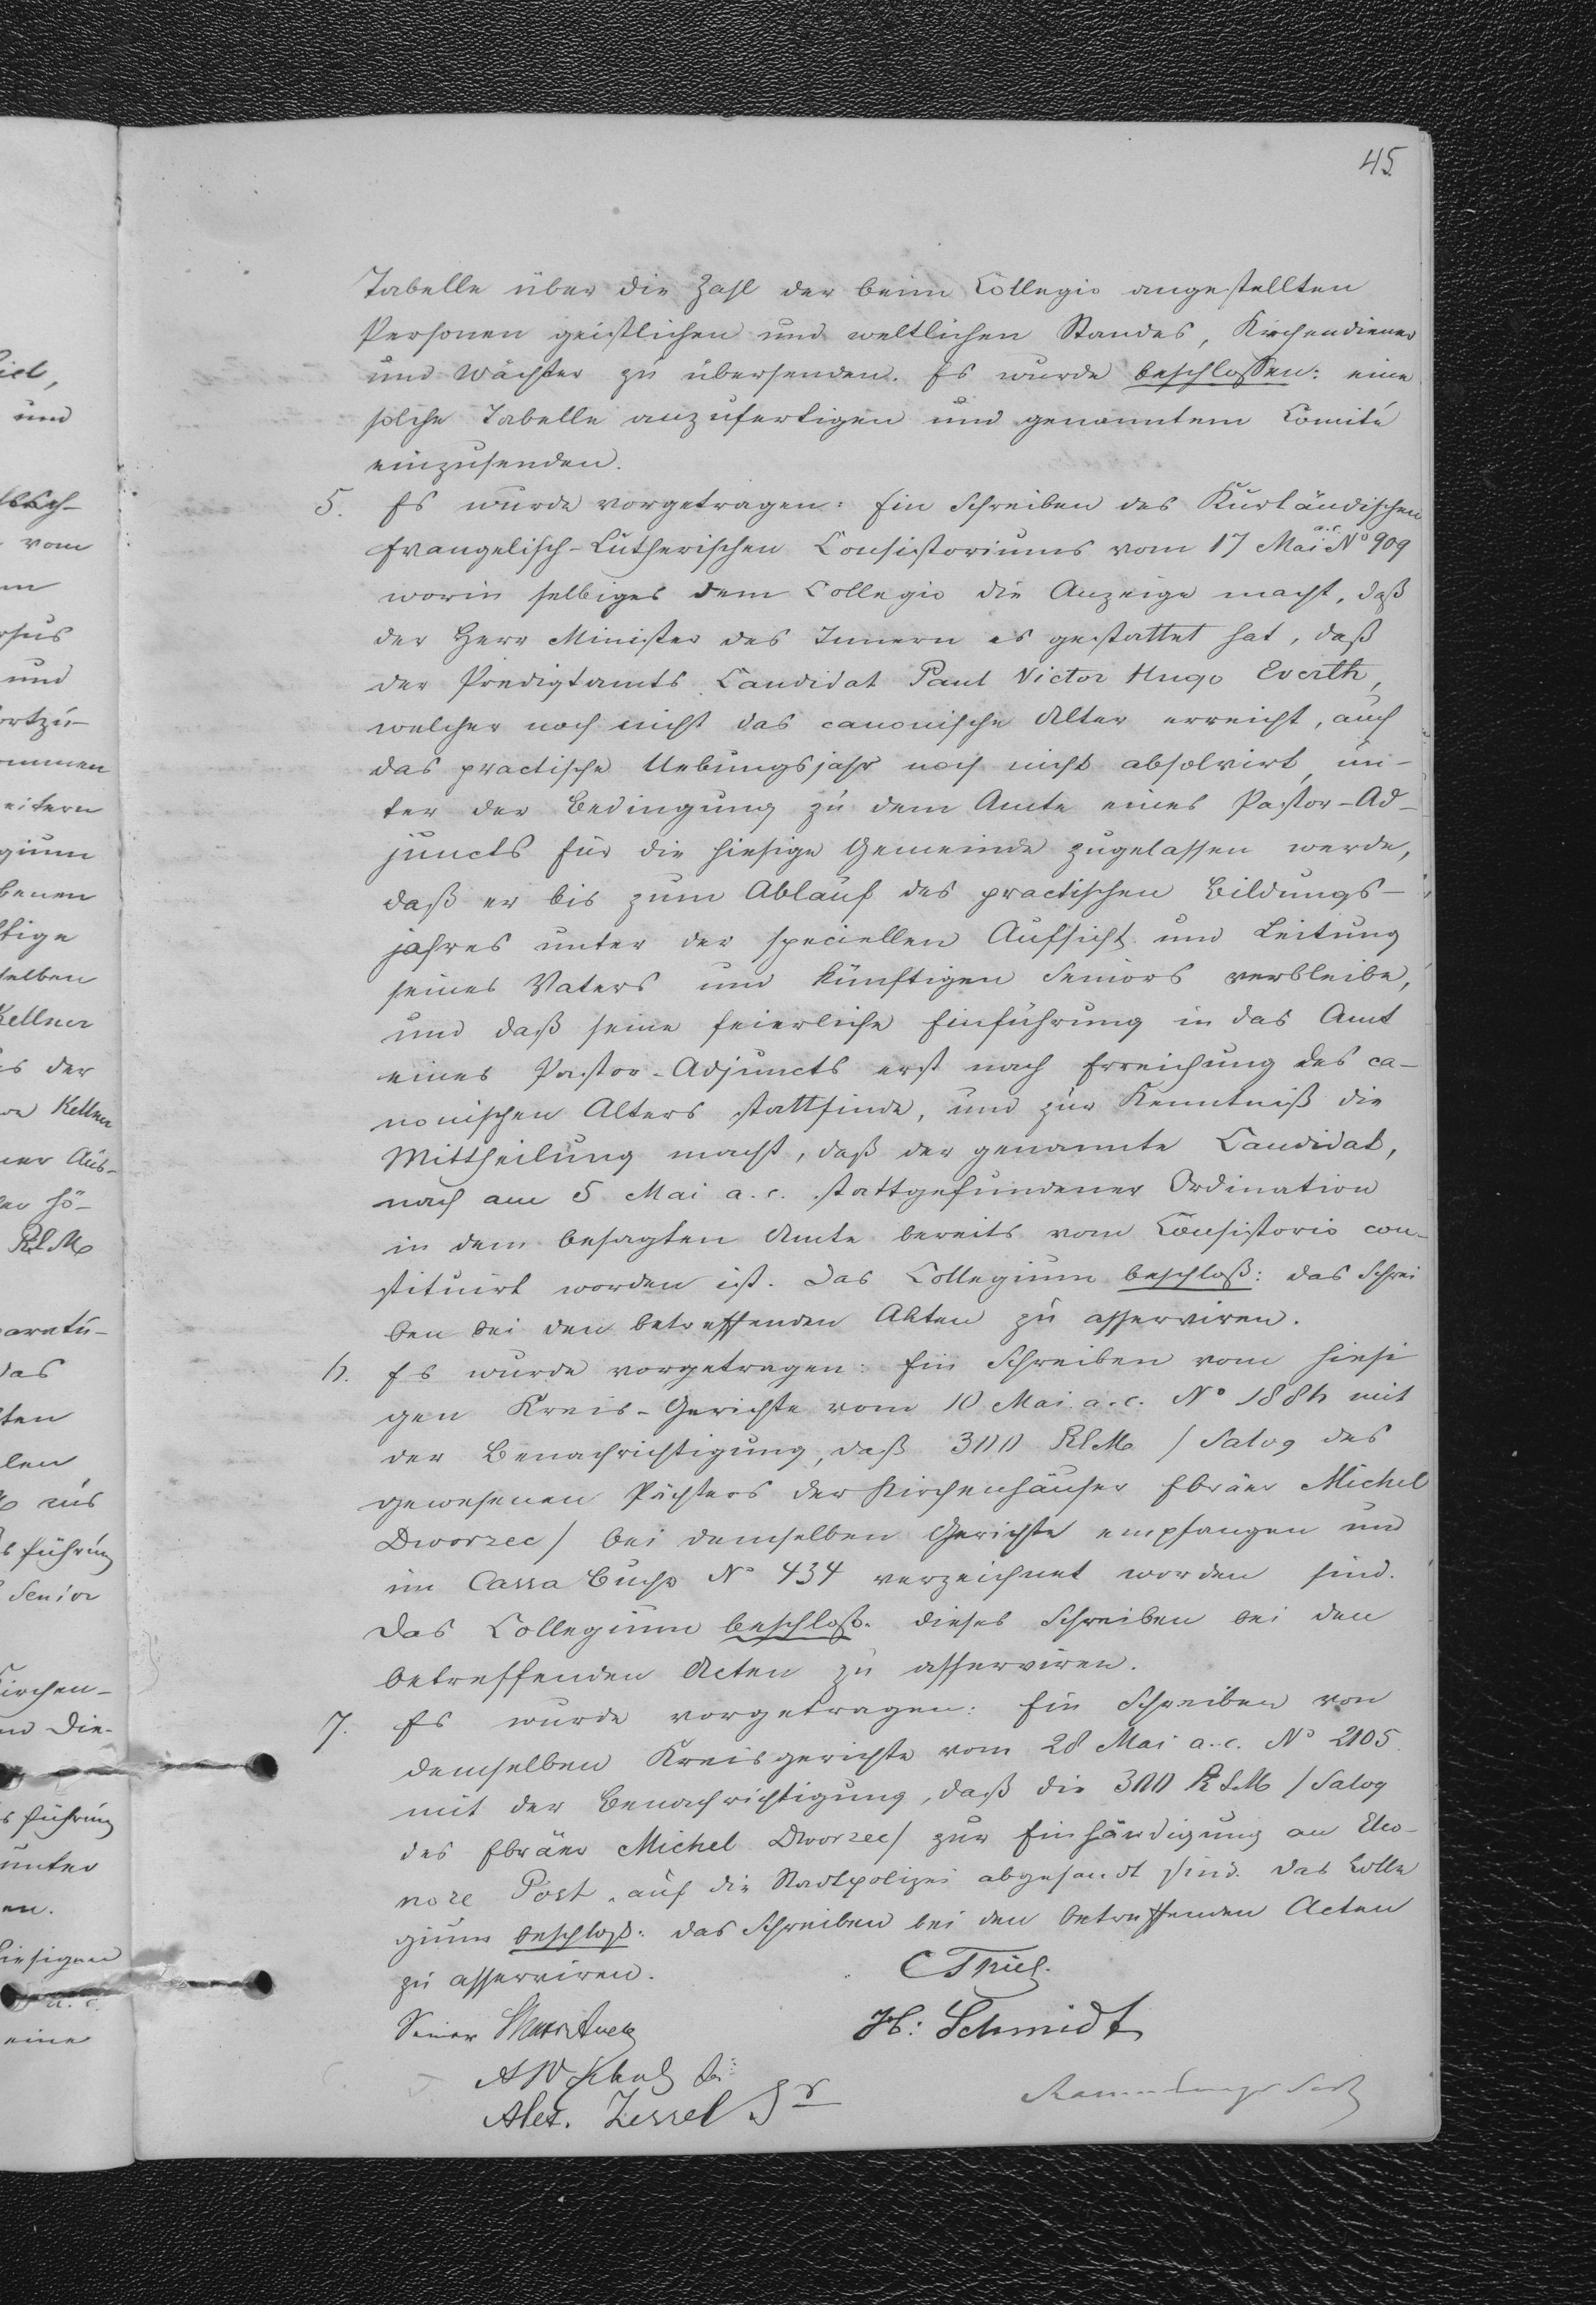 45.
Tabelle über die Zahl der beim Collegio angestellten
Personen geistlichen und weltlichen Standes, Kirchendiener
und Wächter zu übersenden. Es wurde beschlossen: eine
solche Tabelle anzufertigen und genanntem Comité
einzusenden.
5. Es wurde vorgetragen: Ein Schreiben des Kurländischen
Evangelisch-Lutherischen Consistoriums vom 17 Mai a.c. No 909
worin selbiges dem Collegio die Anzeige macht, daß
der Herr Minister des Innern es gestattet hat, daß
der Predigtamts Candidat Paul Victor Hugo Everth,
welcher noch nicht das canonische Alter erreicht, auch
das practische Uebungsjahr noch nicht absolvirt, un-
ter der Bedingung zu dem Amte eines Pastor-Ad-
juncts für die hiesige Gemeinde zugelassen werde,
daß er bis zum Ablauf des practischen Bildungs-
jahres unter der speciellen Aufsicht und Leitung
seines Vaters und künftigen Seniors verbleibe,
und daß seine feierliche Einführung in das Amt
eines Pastor-Adjuncts erst nach Erreichung des ca-
nonischen Alters stattfinde, und zur Kenntniß die
Mittheilung macht, daß der genannte Candidat,
nach am 5 Mai a.c. stattgefundener Ordination
in dem besagten Amte bereits vom Consistorio con-
stituirt worden ist. Das Collegium beschloß: das Schrei
ben bei den betreffenden Akten zu asserviren.
6. Es wurde vorgetragen: Ein Schreiben vom hiesi
gen Kreis-Gerichte vom 10 Mai a.c. No 1886 mit
der Benachrichtigung, daß 300 RSM / Salog des
gewesenen Pächters der Kirchenhäuser Ebräer Michel
Dworzec / bei demselben Gerichte empfangen und
im Cassa Buche No 434 verzeichnet worden sind.
Das Collegium beschloß: dieses Schreiben bei den
betreffenden Acten zu asserviren.
7. Es wurde vorgetragen: Ein Schreiben von
demselben Kreisgerichte vom 28 Mai a.c. No 2105
mit der Benachrichtigung, daß die 300 RSM / Salog
des Ebräer Michel Dworzec / zur Einhändigung an Eleo-
nore Post, auf die Stadtpolizei abgesandt sind. Das Colle
gium beschloß: das Schreiben bei den betreffenden Acten
zu asserviren.
C Thiel.
H: Schmidt
Alex. Zessel